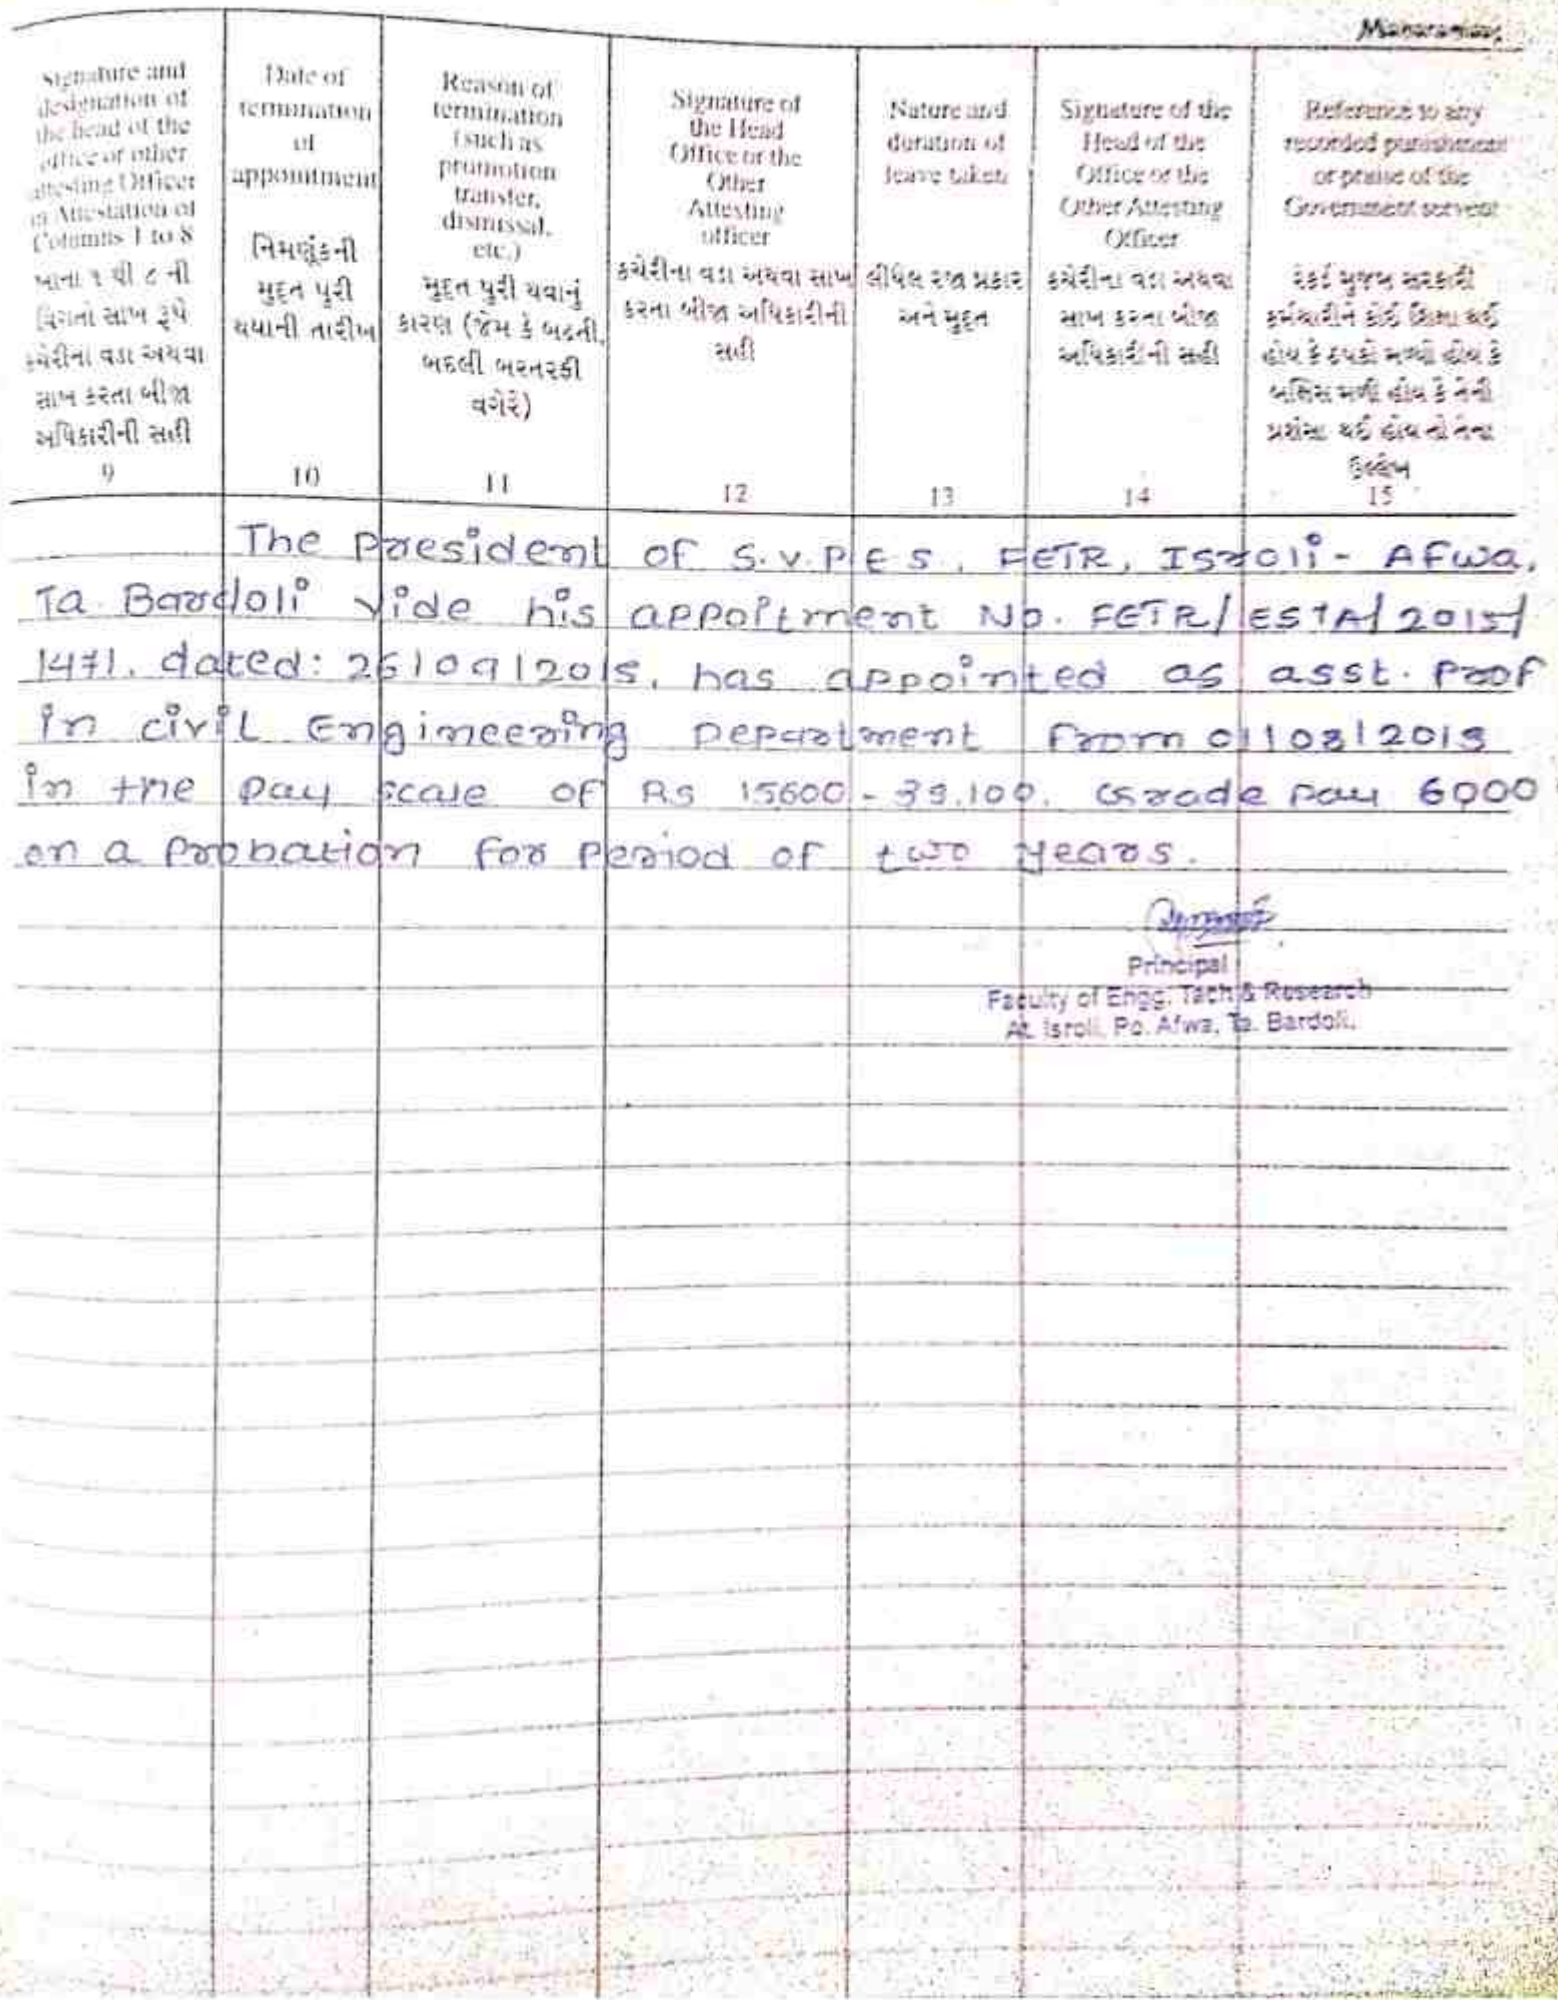 Signature and
designation of
the head of the
office or other
attesting Officer
in Attestation of
Columns 1 to 8
ખાના ૧ થી ૮ ની
વિગતો સાખ રૂપે
કચેરીના વડા અથવા
સાખ કરતા બીજા
અધિકારીની સહી
9
Date of
termination
of
appointment
નિમણૂંકની
મુદ્દત પુરી
થયાની તારીખ
10
Reason of
termination
(such as
promotion
transfer,
dismissal,
etc.)
મુદ્દત પુરી થવાનું
કારણ (જેમ કે બઢતી,
બદલી બરતરફી
વગેરે)
11
Signature of
the Head
Office or the
Other
Attesting
officer
કચેરીના વડા અથવા સાખ
કરતા બીજા અધિકારીની
સહી
12
Nature and
duration of
leave taken
લીધેલ રજા પ્રકાર
અને મુદ્દત
13
Signature of the
Head of the
Office or the
Other Attesting
Officer
કચેરીના વડા અથવા
સાખ કરતા બીજા
અધિકારીની સહી
14
Reference to any
recorded punishment
or praise of the
Government servent
રેકર્ડ મુજબ સરકારી
કર્મચારીને કોઈ શિક્ષા થઈ
હોય કે ઠપકો મળ્યો હોય કે
બક્ષિસ મળી હોય કે તેની
પ્રશંસા થઈ હોય તો તેના
ઉલ્લેખ
15
The President of S.V.P.E.S, FETR, Isroli - Afwa,
Ta Bardoli vide his appoitment No. FETR/ESTA/2015/
1471, dated: 26/09/2015, has appointed as asst. Prof
in civil Engineering Department from
in the pay scale of Rs 15600 - 39,100, Grade pay 6000
on a Probation for Period of two years.
Principal
Faculty of Engg. Tech & Research
At. Isroli, Po. Afwa, Ta. Bardoli.